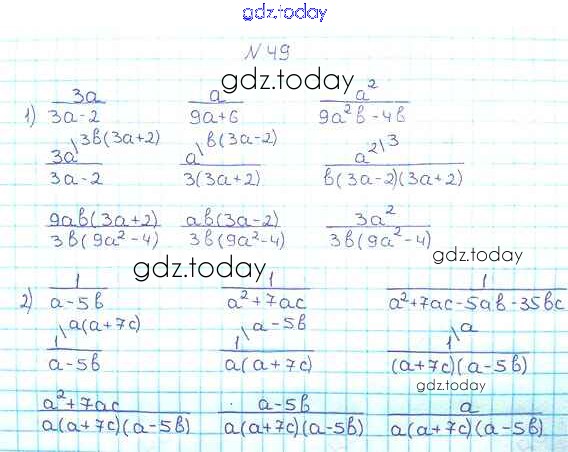 gdz.today
N 49
gdz.today
1) 3a/(3a-2) a/(9a+6) a²/(9a²в-4в)
3a\3в(3a+2)/(3a-2) a\в(3a-2)/(3(3a+2)) a²\3/(в(3a-2)(3a+2))
9aв(3a+2)/(3в(9a²-4)) aв(3a-2)/(3в(9a²-4)) 3a²/(3в(9a²-4))
gdz.today
gdz.today
2) 1/(a-5в) 1/(a²+7ac) 1/(a²+7ac-5aв-35вc)
1\a(a+7c)/(a-5в) 1\a-5в/(a(a+7c)) 1\a/((a+7c)(a-5в))
gdz.today
(a²+7ac)/(a(a+7c)(a-5в)) (a-5в)/(a(a+7c)(a-5в)) a/(a(a+7c)(a-5в))